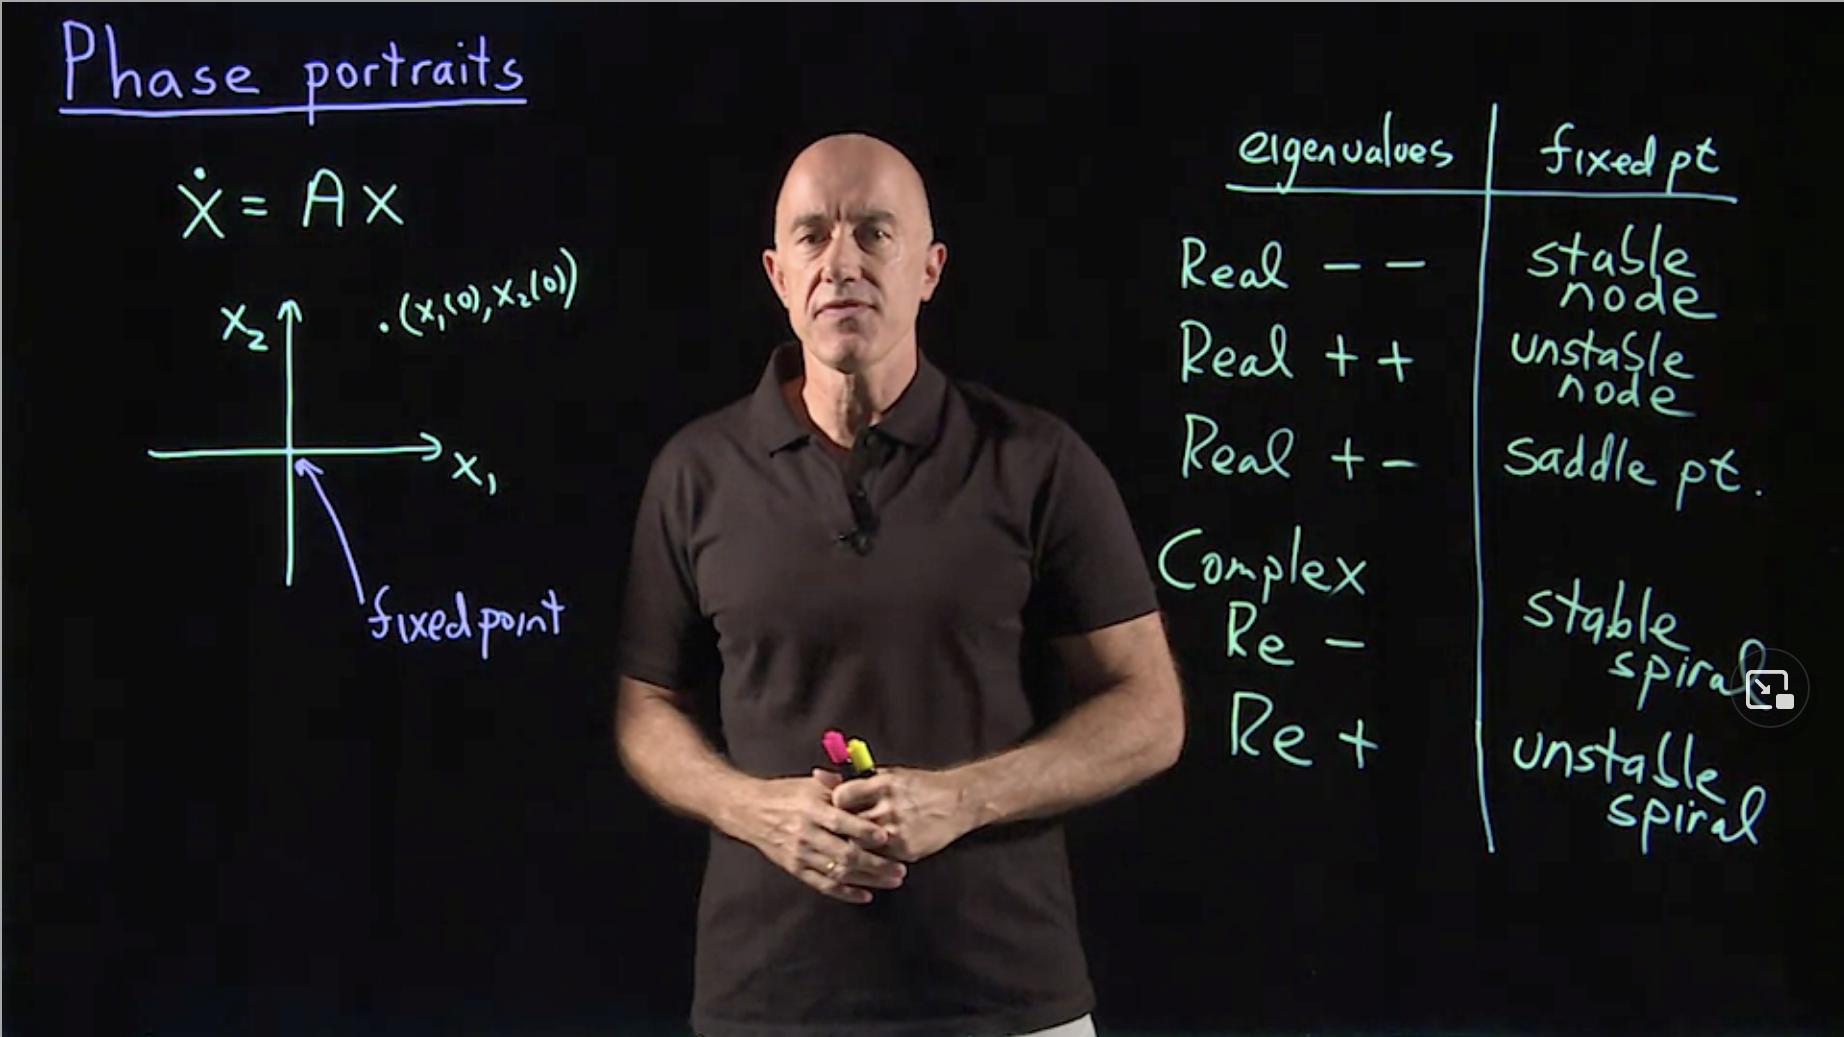 Phase portraits
ẋ = A x
x₂
.(x₁(0), x₂(0))
x₁
fixed point
eigenvalues fixed pt
Real - - stable
node
Real + + unstable
node
Real + - saddle pt.
Complex
Re - stable
spiral
Re + unstable
spiral